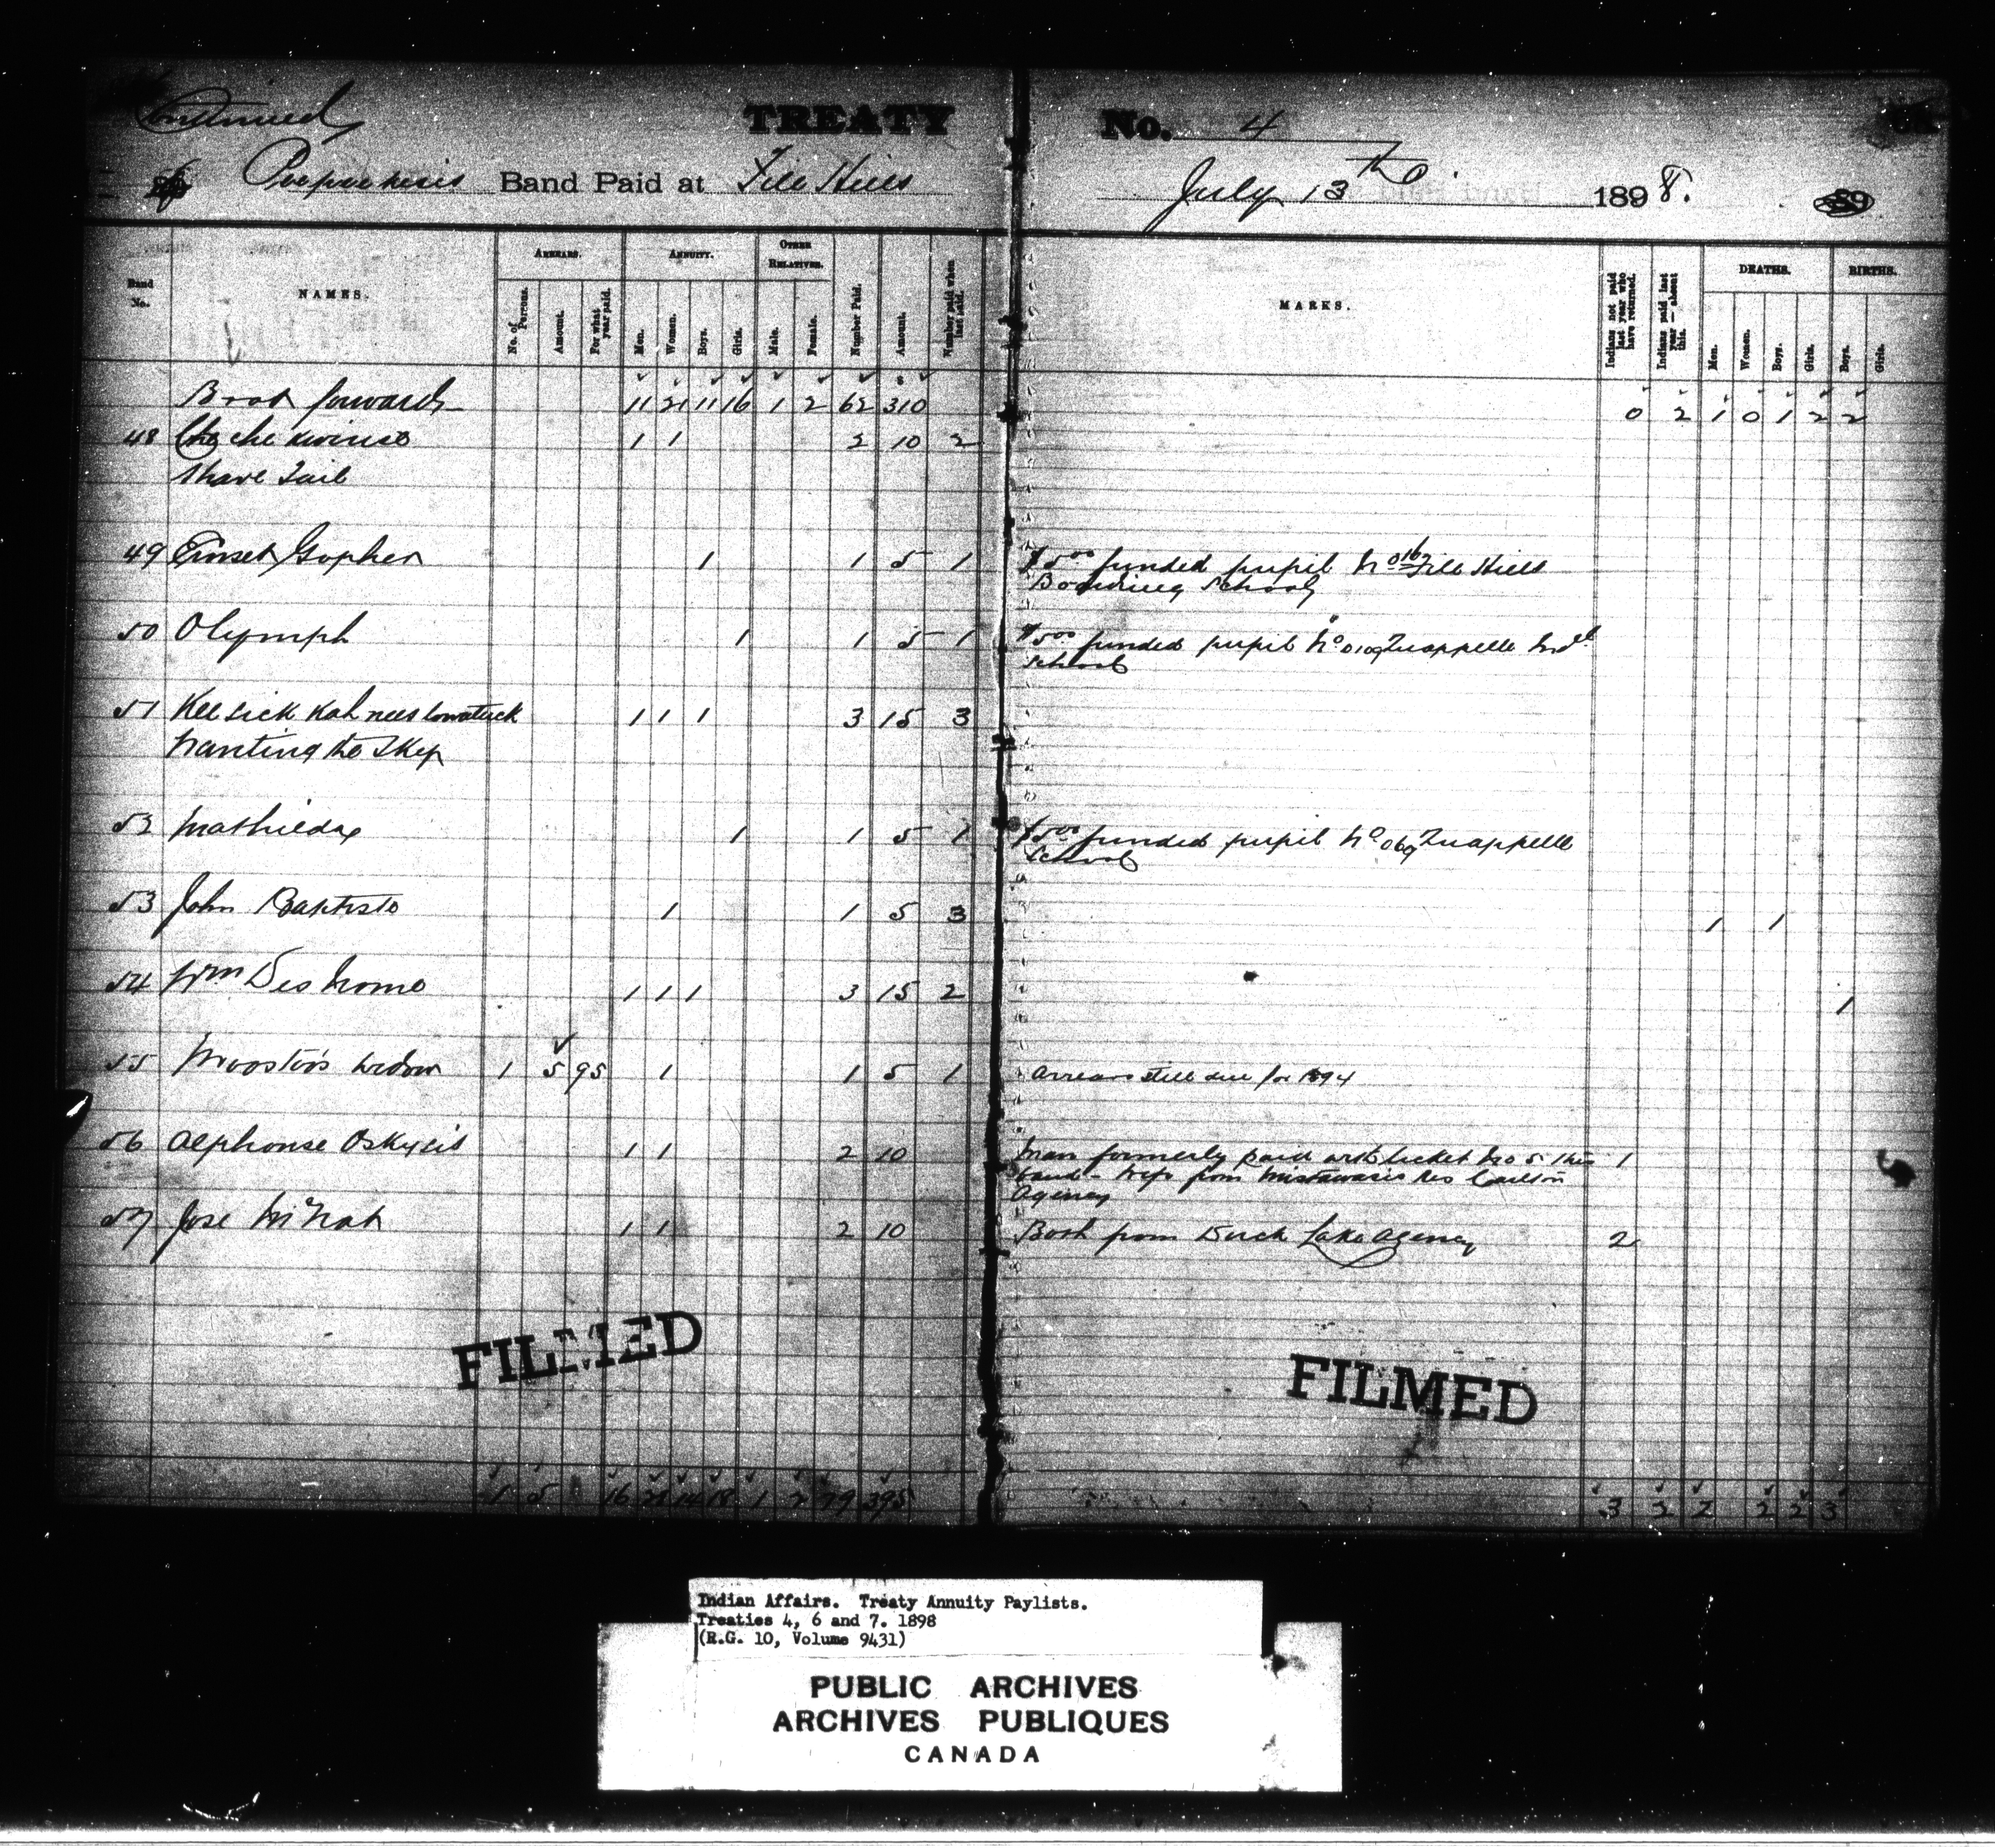 Continued
TREATY No. 4
Peepeekesis Band Paid at File Hills July 13th 1898.
Band No.
NAMES.
ARREARS.
No. of Persons.
Amount.
For what year paid.
ANNUITY.
Men.
Women.
Boys.
Girls.
OTHER RELATIVES.
Male.
Female.
Number Paid.
Amount.
Number paid when last paid.
MARKS.
Indians not paid last year who have returned.
Indians paid last year—absent this.
DEATHS.
Men.
Women.
Boys.
Girls.
BIRTHS.
Boys.
Girls.
Brot forward 11 21 11 16 1 2 62 310 0 2 1 0 1 2 2
48 1 1 2 10 2
Shave Tail
49 Gopher 1 1 5 1 $5.00 funded pupil No 016 File Hills
Boarding School
50 Olymph 1 1 5 1 $5.00 funded pupil No 0109 Quappelle Indl
School
51 Kee sick kah nees 1 1 1 3 15 3
the Sky
52 Mathilda 1 1 5 1 $5.00 funded pupil No 069 Quappelle
School
53 John Baptiste 1 1 5 3 1 1
54 Wm Desnomo 1 1 1 3 15 2 1
55 widow 1 5 95 1 1 5 1 Arrears still due for 1894
56 Alphonse 1 1 2 10 Man formerly paid with ticket No 5 this 1
band - wife from Mistawasis Res Carlton
Agency
57 Jose McNab 1 1 2 10 Both from Duck Lake Agency 2
FILMED
FILMED
1 5 16 28 14 18 1 2 79 395 3 2 2 2 2 3
Indian Affairs. Treaty Annuity Paylists.
Treaties 4, 6 and 7. 1898
(R.G. 10, Volume 9431)
PUBLIC ARCHIVES
ARCHIVES PUBLIQUES
CANADA